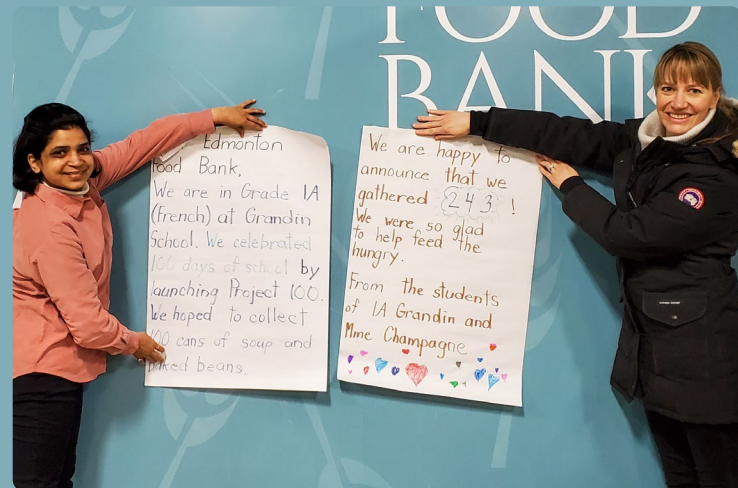 FOOD
BANK
Edmonton
Food Bank,
We are in Grade 1A
(French) at Grandin
School. We celebrated
100 days of school by
launching Project 100.
We hoped to collect
100 cans of soup and
baked beans.
We are happy to
announce that we
gathered 243!
We were so glad
to help feed the
hungry.
From the students
of 1A Grandin and
Mme Champagne